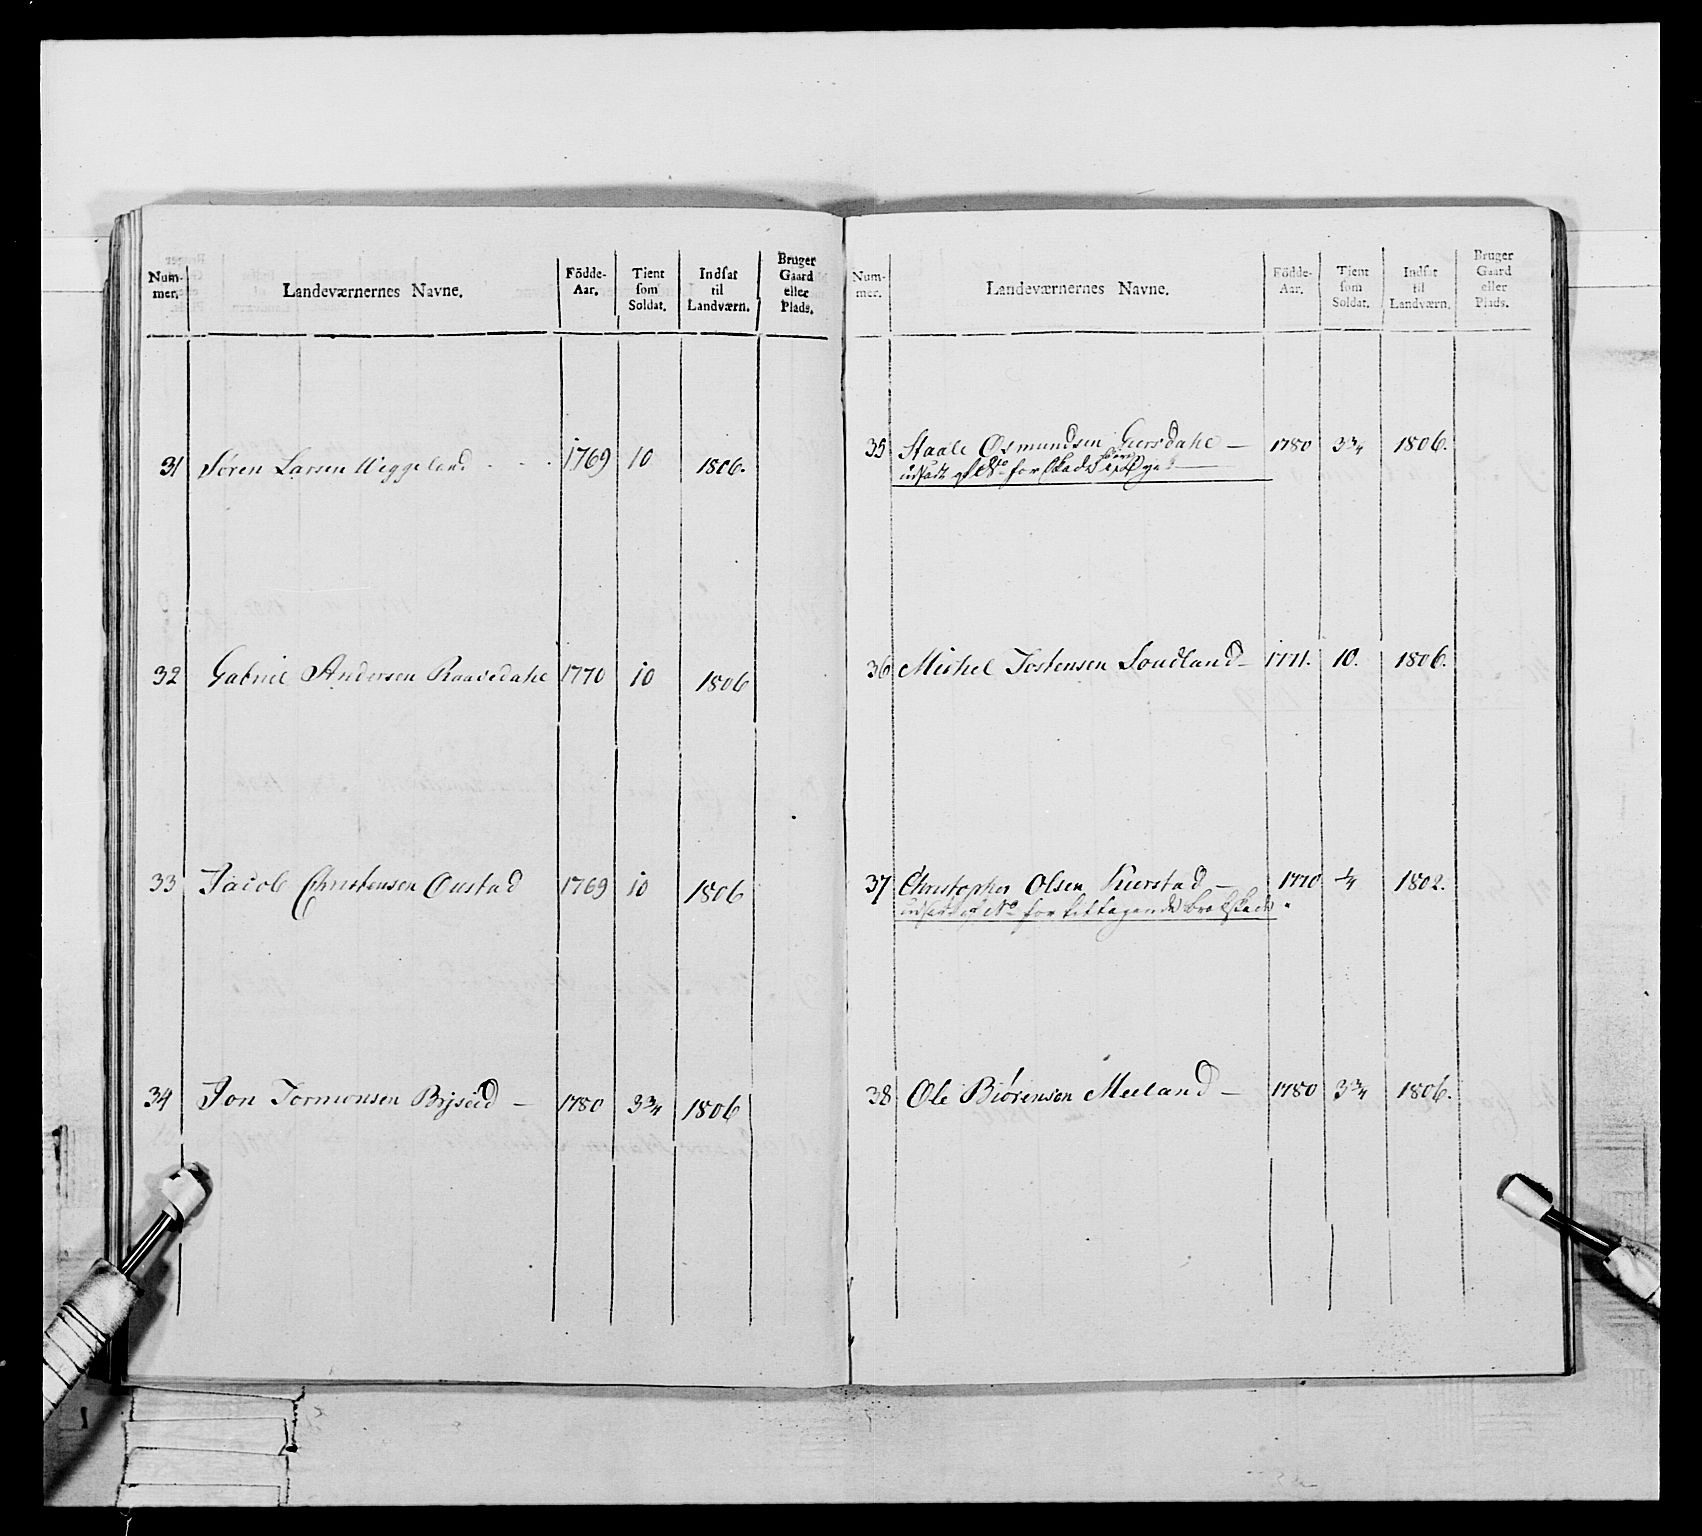 Num-
mer.
Landeværnernes Navne.
Födde-
Aar.
Tient
som
Soldat.
Indsat
til
Landværn.
Bruger
Gaard
eller
Plads.
31 Søren Larsen Wiggeland - - - 1769 10 1806.
32 Gabriel Andersen Raavedahl 1770 10 1806
33 Jacob Christensen Oustad 1769 10 1806
34 Jon Tormunsen 1780 3¾ 1806
Num-
mer.
Landeværnernes Navne.
Födde-
Aar.
Tient
som
Soldat.
Indsat
til
Landværn.
Bruger
Gaard
eller
Plads.
35 Staale Osmundsen Giersdahl — 1780 3¾ 1806.
udsadt for
36 Michel Jostensen Loudland — 1771. 10. 1806.
37 Christopher Olsen Kierstad — 1770 ¼ 1802.
for
38 Ole Biørensen Meeland — 1780 3¾ 1806.